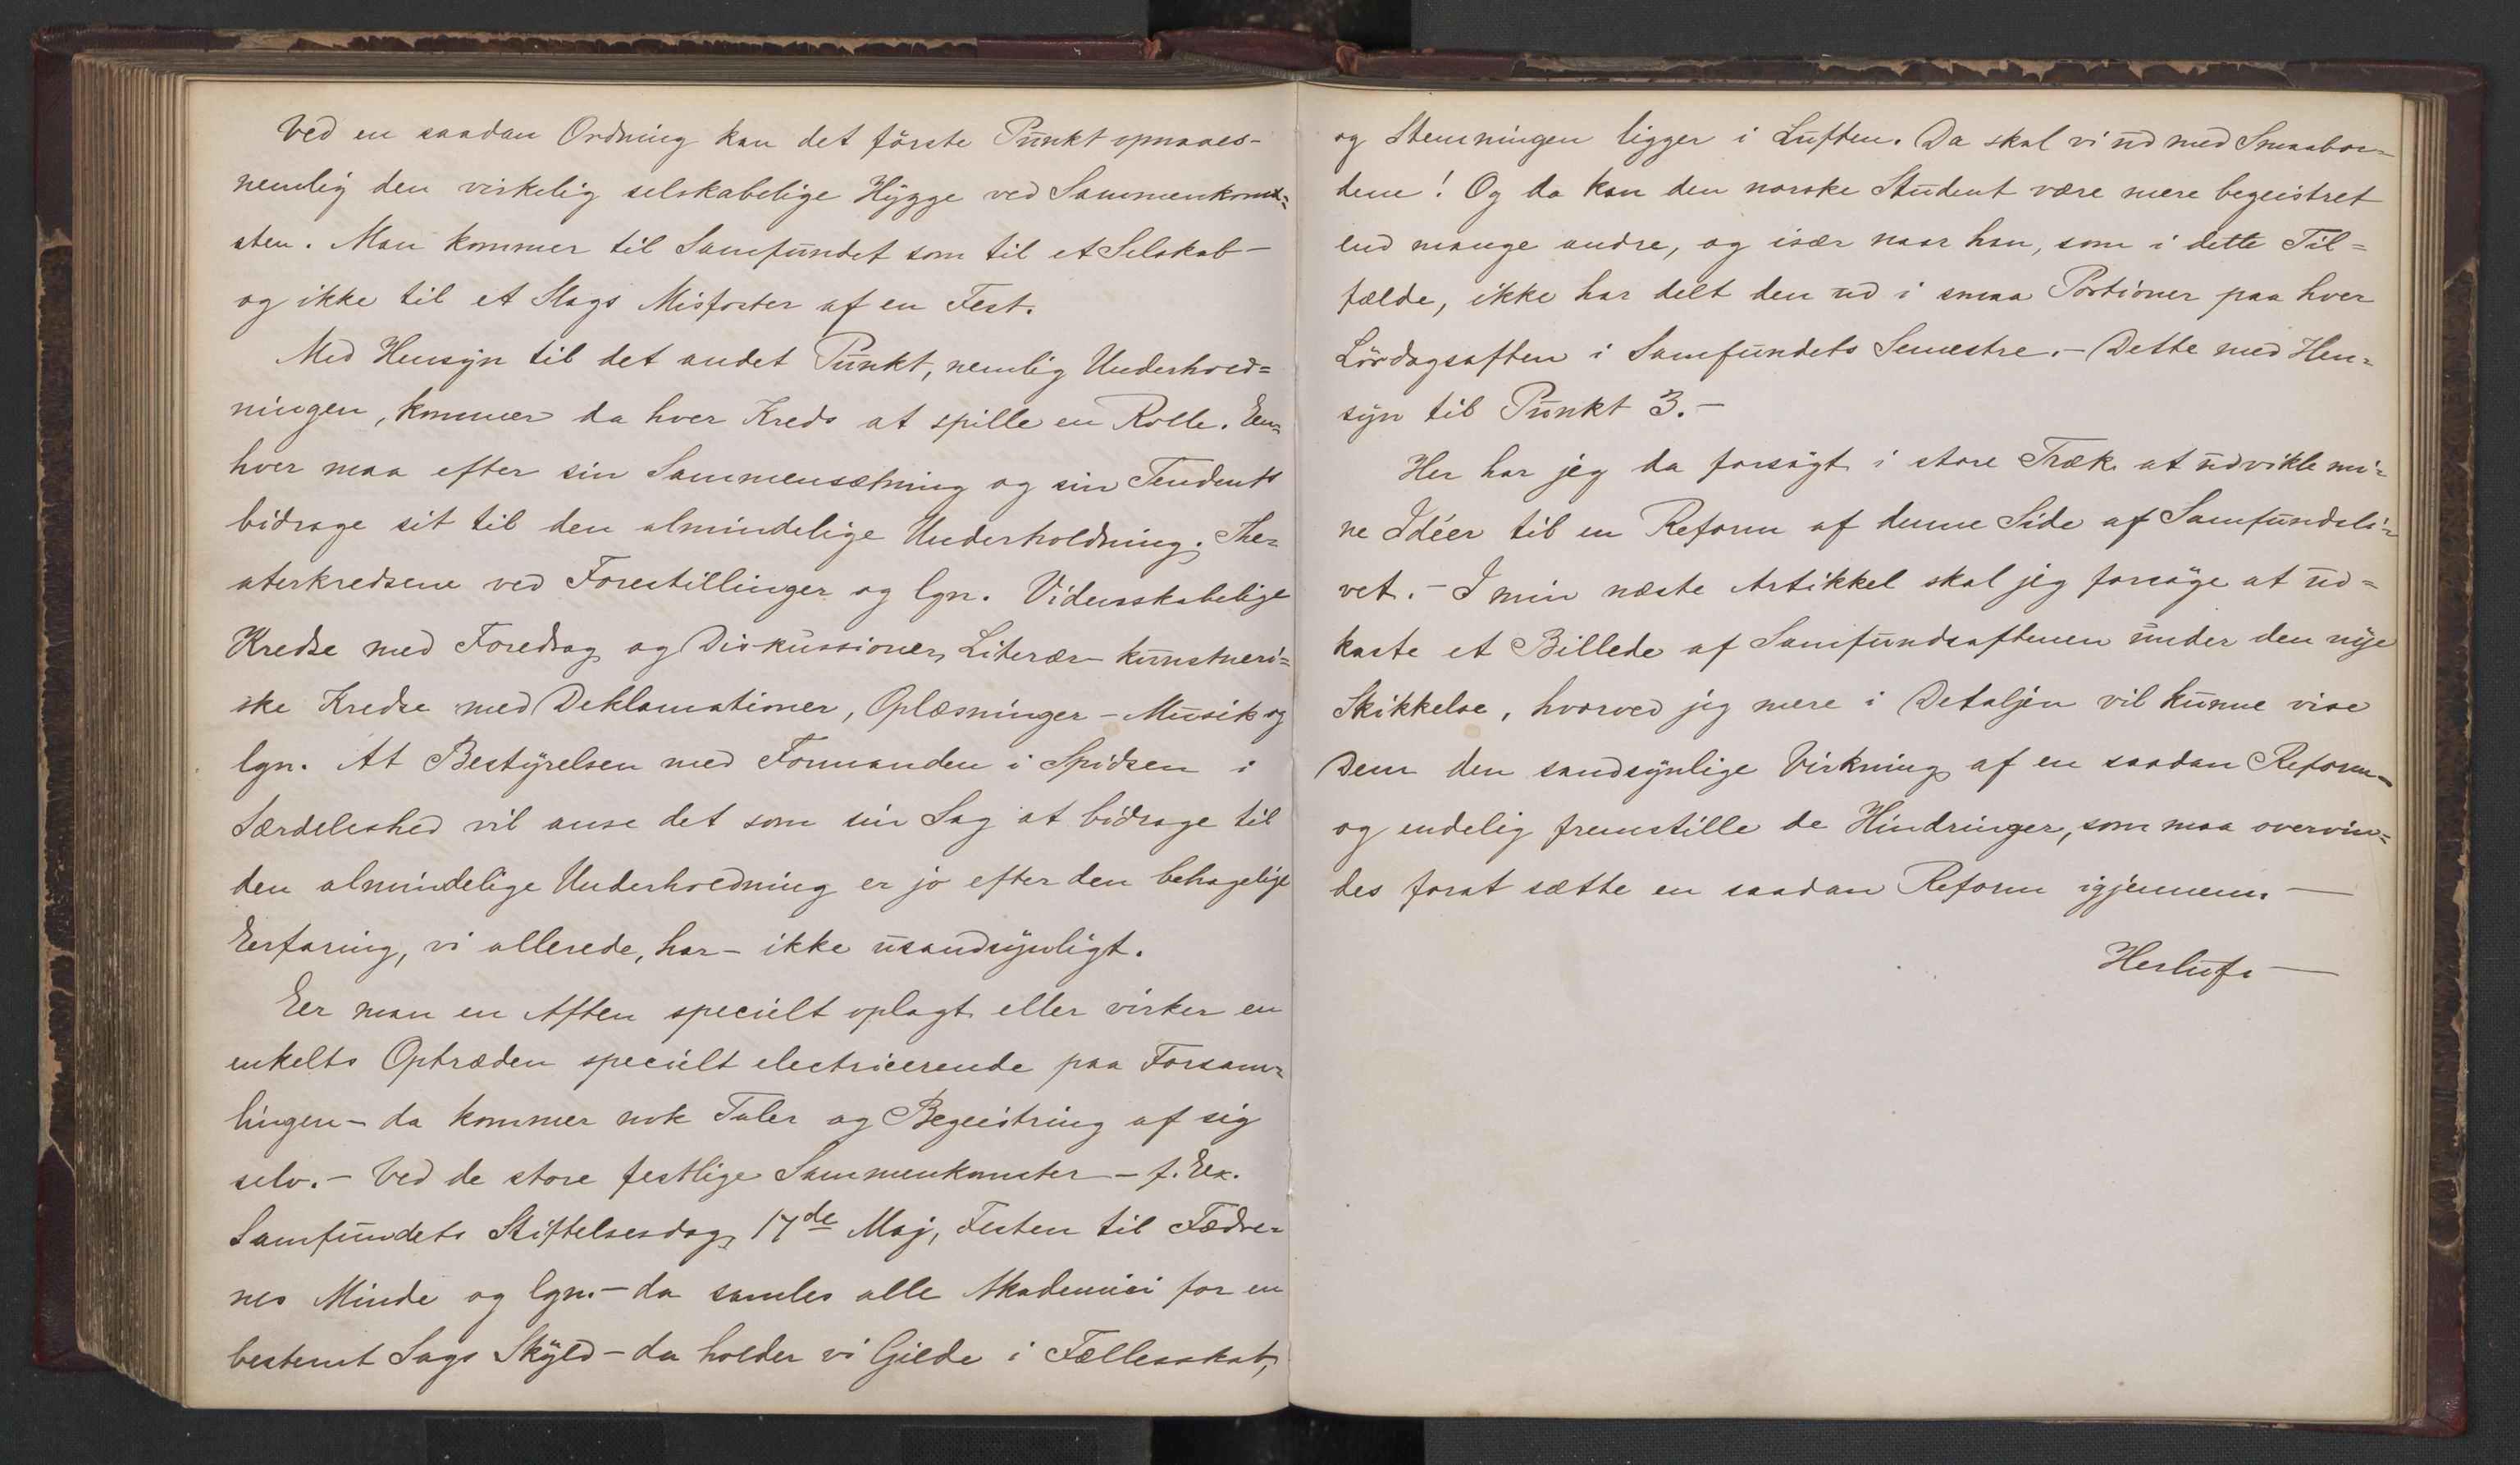 Ved en saadan Ordning kan det første Punkt opnaaes-
nemlig den virkelig selskabelige Hygge ved Sammenkom=
sten. Man kommer til Samfundet som til et Selskab-
og ikke til et Slags Misfoster af en Fest.
Med Hensyn til det andet Punkt, nemlig Underhold=
ningen, kommer da hver Kreds at spille en Rolle. En=
hver maa efter sin Sammensætning og sin Tendents
bidrage sit til den almindelige Underholdning. The=
aterkredsene ved Forestillinger og lgn. Videnskabelige
Kredse med Foredrag og Diskussioner, Literær-kunstneri=
ske Kredse med Deklamationer, Oplæsninger - Musik og
lgn. At Bestyrelsen med Formanden i Spidsen i
Særdeleshed vil anse det som sin Sag at bidrage til
den almindelige Underholdning er jo efter den behagelige
Erfaring, vi allerede, har - ikke usandsynligt.
Er man en Aften specielt oplagt eller virker en
enkelts Optræden specielt electricerende paa Forsam=
lingen - da kommer nok Taler og Begeistring af sig
selv. - Ved de store festlige Sammenkomster - f. Ex.
Samfundets Stiftelsesdag, 17de Maj, Festen til Fædre=
nes Minde og lgn. - da samles alle Akademici for en
bestemt Sags Skyld - da holder vi Gilde i Fællesskab,
og Stemningen ligger i Luften. Da skal vi ud med Smaabor=
dene! Og da kan den norske Student være mere begeistret
end mange andre, og især naar han, som i dette Til=
fælde, ikke har delt den ud i smaa Portioner paa hver
Lørdagsaften i Samfundets Semestre. - Dette med Hen=
syn til Punkt 3. -
Her har jeg da forsøgt i store Træk at udvikle mi=
ne Idéer til en Reform af denne Side af Samfundsli=
vet. - I min næste Artikkel skal jeg forsøge at ud=
kaste et Billede af Samfundsaftenen under den nye
Skikkelse, hvorved jeg mere i Detaljen vil kunne vise
Dem den sandsynlige Virkning af en saadan Reform -
og endelig fremstille de Hindringer, som maa overvin=
des forat sætte en saadan Reform igjennem. -
Herluf. -